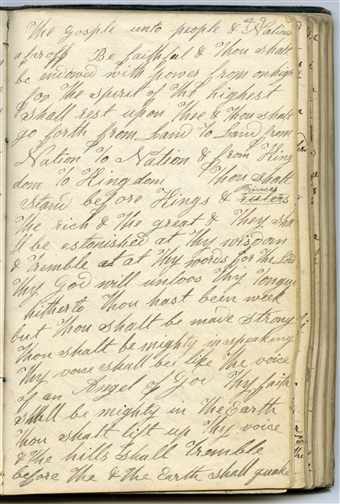 The gosple unto people & Nations
afar off Be faithful & Thou shalt
be indowed with power from on high
for The spirit of the highest
shall rest upon Thee & thou shalt
go forth from Land To Land from
Nation To Nation & from King
dom To Kingdom Thou Shalt
Princes
stand before Kings & rulers
The rich & the great & They sha
ll be estonished at Thy wisdom
& tremble at at Thy words for the Lord
Thy God will unloos Thy Tongue
hitherto Thou hast been week
but Thou shalt be made strong
Thou shalt be mighty in speaking
Thy voice shall be like the voice
of an Angel of God Thy faith
shall be mighty in The Earth
Thou shalt lift up Thy voice
& The hills shall Tremble
before The & the Earth shall quake